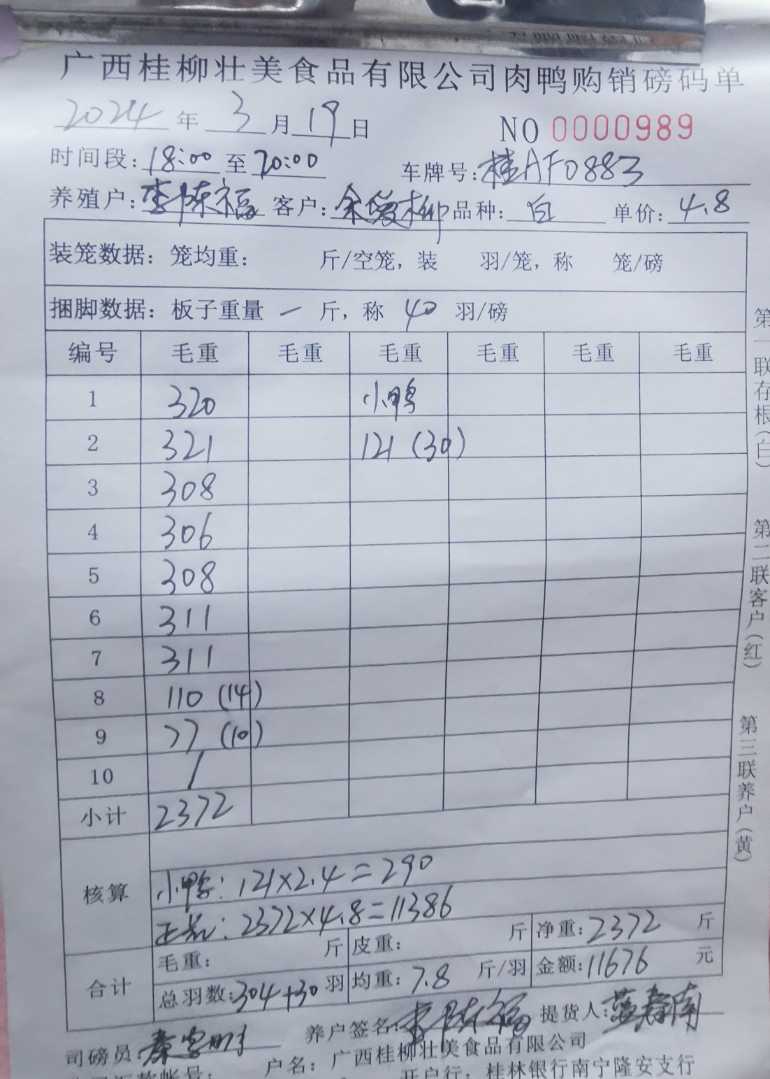 广西桂柳壮美食品有限公司肉鸭购销磅码单
2024 年 3 月 19 日 NO 0000989
时间段: 18:00 至 20:00 车牌号: 桂AF0883
养殖户: 李陈福 客户: 品种: 白 单价: 4.8
装笼数据: 笼均重: 斤/空笼, 装 羽/笼, 称 笼/磅
捆脚数据: 板子重量 一 斤, 称 40 羽/磅
编号 毛重 毛重 毛重 毛重 毛重 毛重
1 320 小鸭
2 321 121 (30)
3 308
4 306
5 308
6 311
7 311
8 110 (14)
9 77 (10)
10 /
小计 2372
核算
小鸭: 121×2.4=290
正品: 2372×4.8=11386
合计
毛重: 斤 皮重: 斤 净重: 2372 斤
总羽数: 304+30 羽 均重: 7.8 斤/羽 金额: 11676 元
司磅员: 养户签名: 李陈福 提货人:
户名: 广西桂柳壮美食品有限公司
开户行: 桂林银行南宁隆安支行
第一联存根(白)
第二联客户(红)
第三联养户(黄)